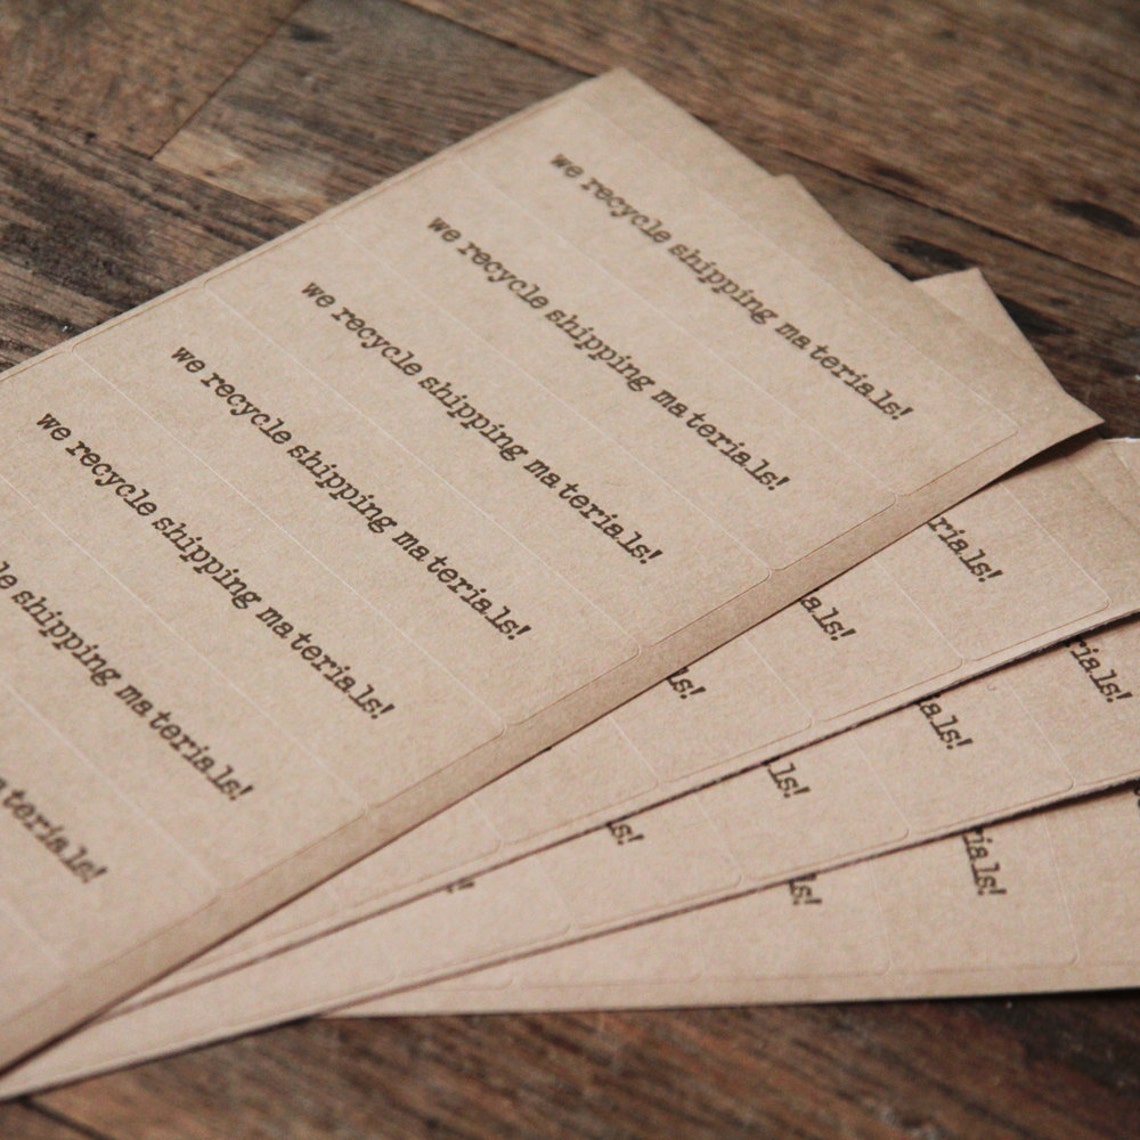 we recycle shipping materials!
we recycle shipping materials!
we recycle shipping materials!
we recycle shipping materials!
we recycle shipping materials!
shipping materials!
materials!
rials!
als!
ls!
rials!
als!
ls!
ls!
rials!
ls!